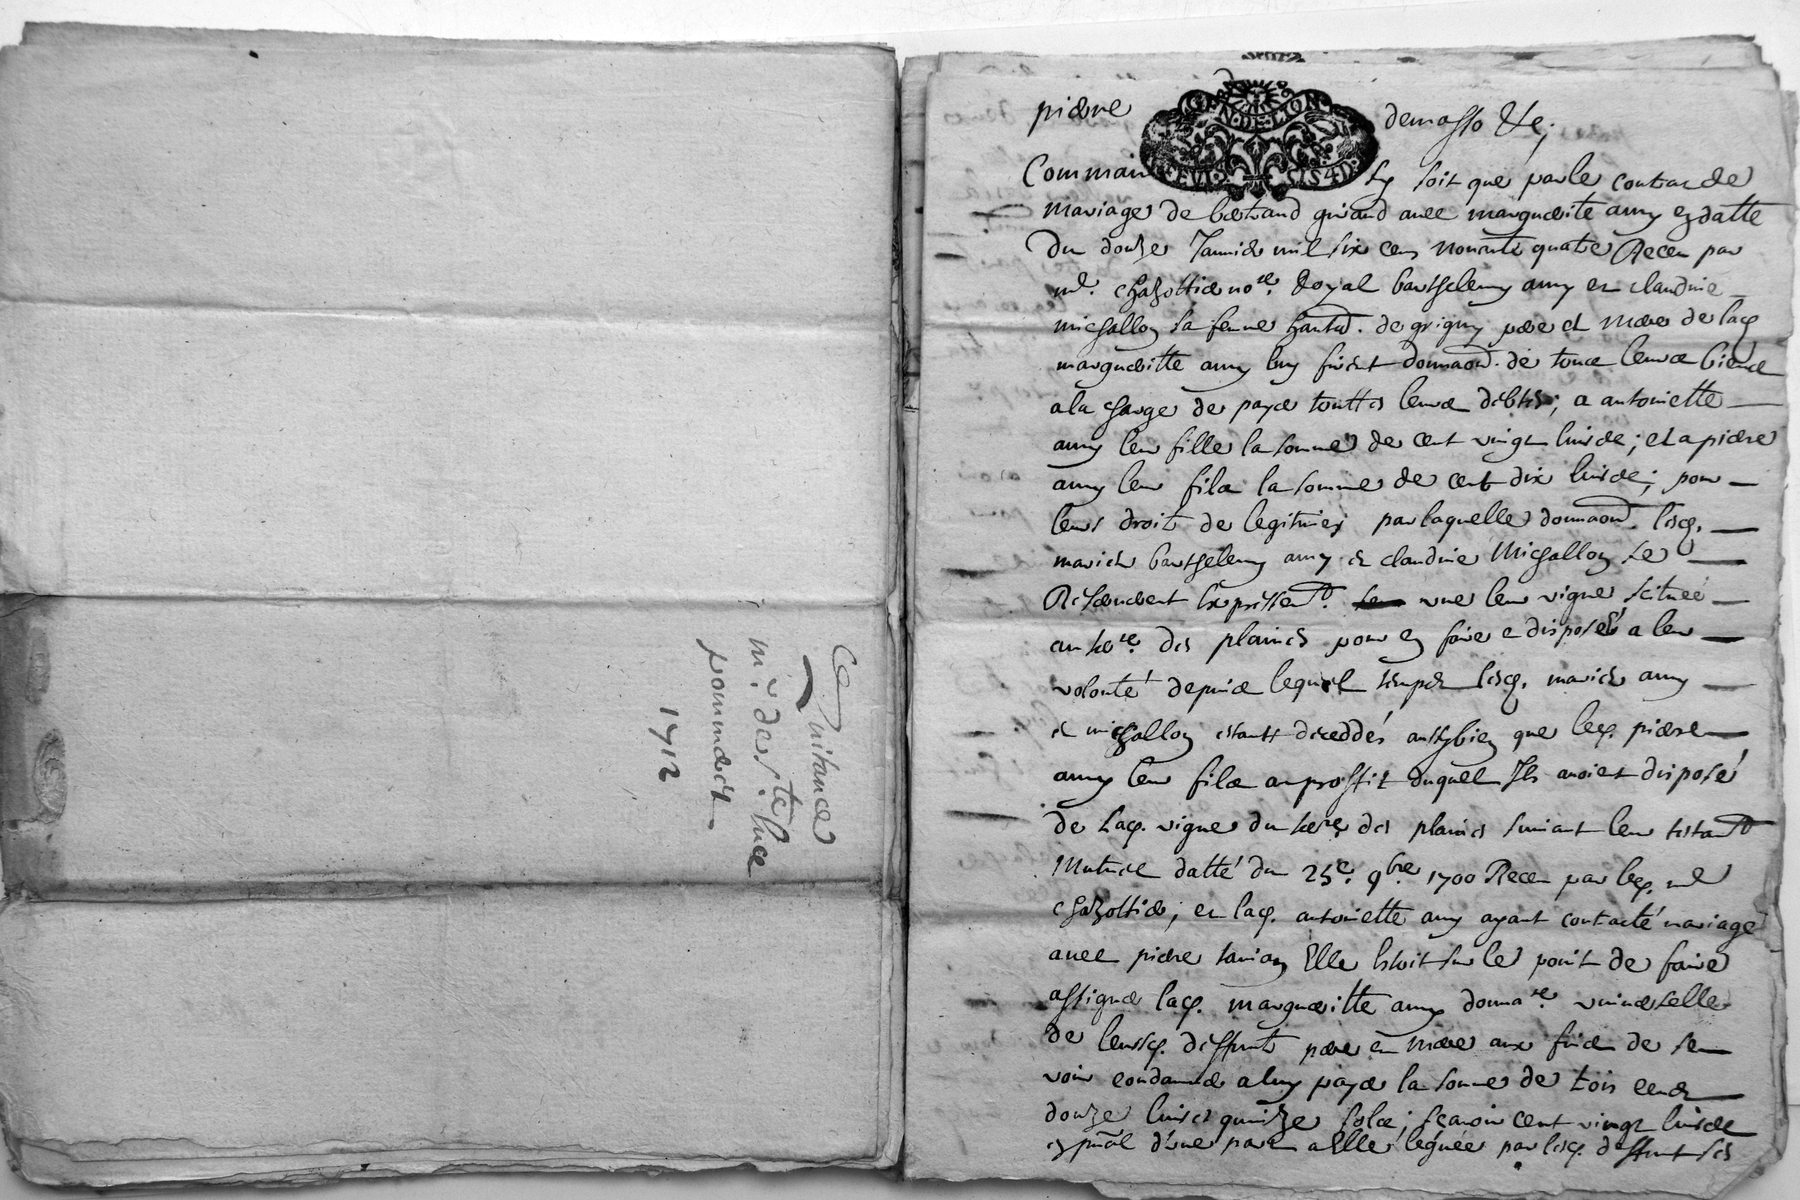 Quitance
mr de ste luce
pommaret
1712
pierre demasso &c;
GEN·DE·LION
Comme ainsy soit que par le contrac de
mariage de bertrand girard avec marguerite amy en datte
du douze Janvier mil six cens nonente quatre Receu par
me. chazottier nore. Royal barthelemy amy et claudine
michallon sa femme habtd. de grigny pere et mere de lad.
margueritte amy luy firent donnaon. de tous leurs biens
a la charge de payer touttes leurs debtes; a antoinette
amy leur fille la somme de cent vingt livres; et a pierre
amy leur fils la somme de cent dix livres; pour
leurs droit de legitimes par laquelle donnaon. lesd.
mariés barthelemy amy et claudine Michallon se
Reserverent Expressemt. une leur vigne scituée
au tere. des plaines pour en faire e disposer a leur
volonté depuis lequel temps lesd. mariés amy
et michallon estants deceddés aussybien que led. pierre
amy leur fils au proffit duquel Ils avoient disposé
de lad. vigne du tere. des plaines suivant leur testamt
Mutuel datté du 25e. 9bre 1700 Receu par led. me
chazottier; et lad. antoinette amy ayant contracté mariage
avec pierre Elle Estoit sur le point de faire
assigner lad. margueritte amy donnare. universelle
de leursd. deffunts pere et mere aux fins de se
voir condamner a luy payer la somme de trois cents
douze livres quinze sols; sçavoir cent vingt livres
en pnal d'une part a Elle leguée par lesd. deffunt ses